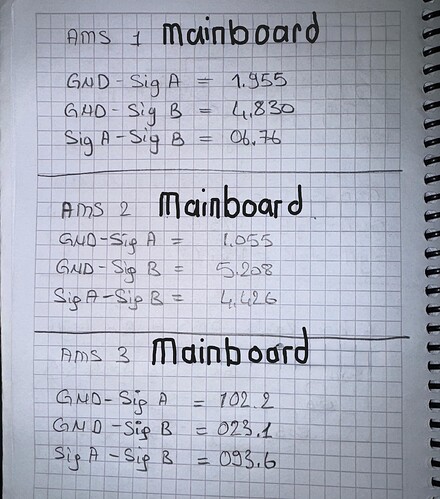 AMS 1 Mainboard
GND-Sig A = 1.955
GND-Sig B = 4.830
Sig A-Sig B = 06.76
AMS 2 Mainboard
GND-Sig A = 1.055
GND-Sig B = 5.208
Sig A-Sig B = 4.426
AMS 3 Mainboard
GND-Sig A = 102.2
GND-Sig B = 023.1
Sig A-Sig B = 093.6